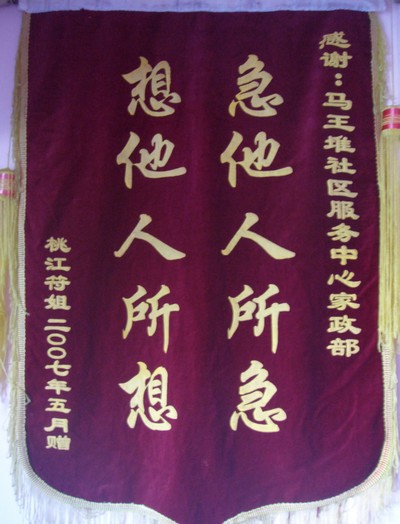 感谢：马王堆社区服务中心家政部
急他人所急
想他人所想
桃江符姐二〇〇七年五月赠